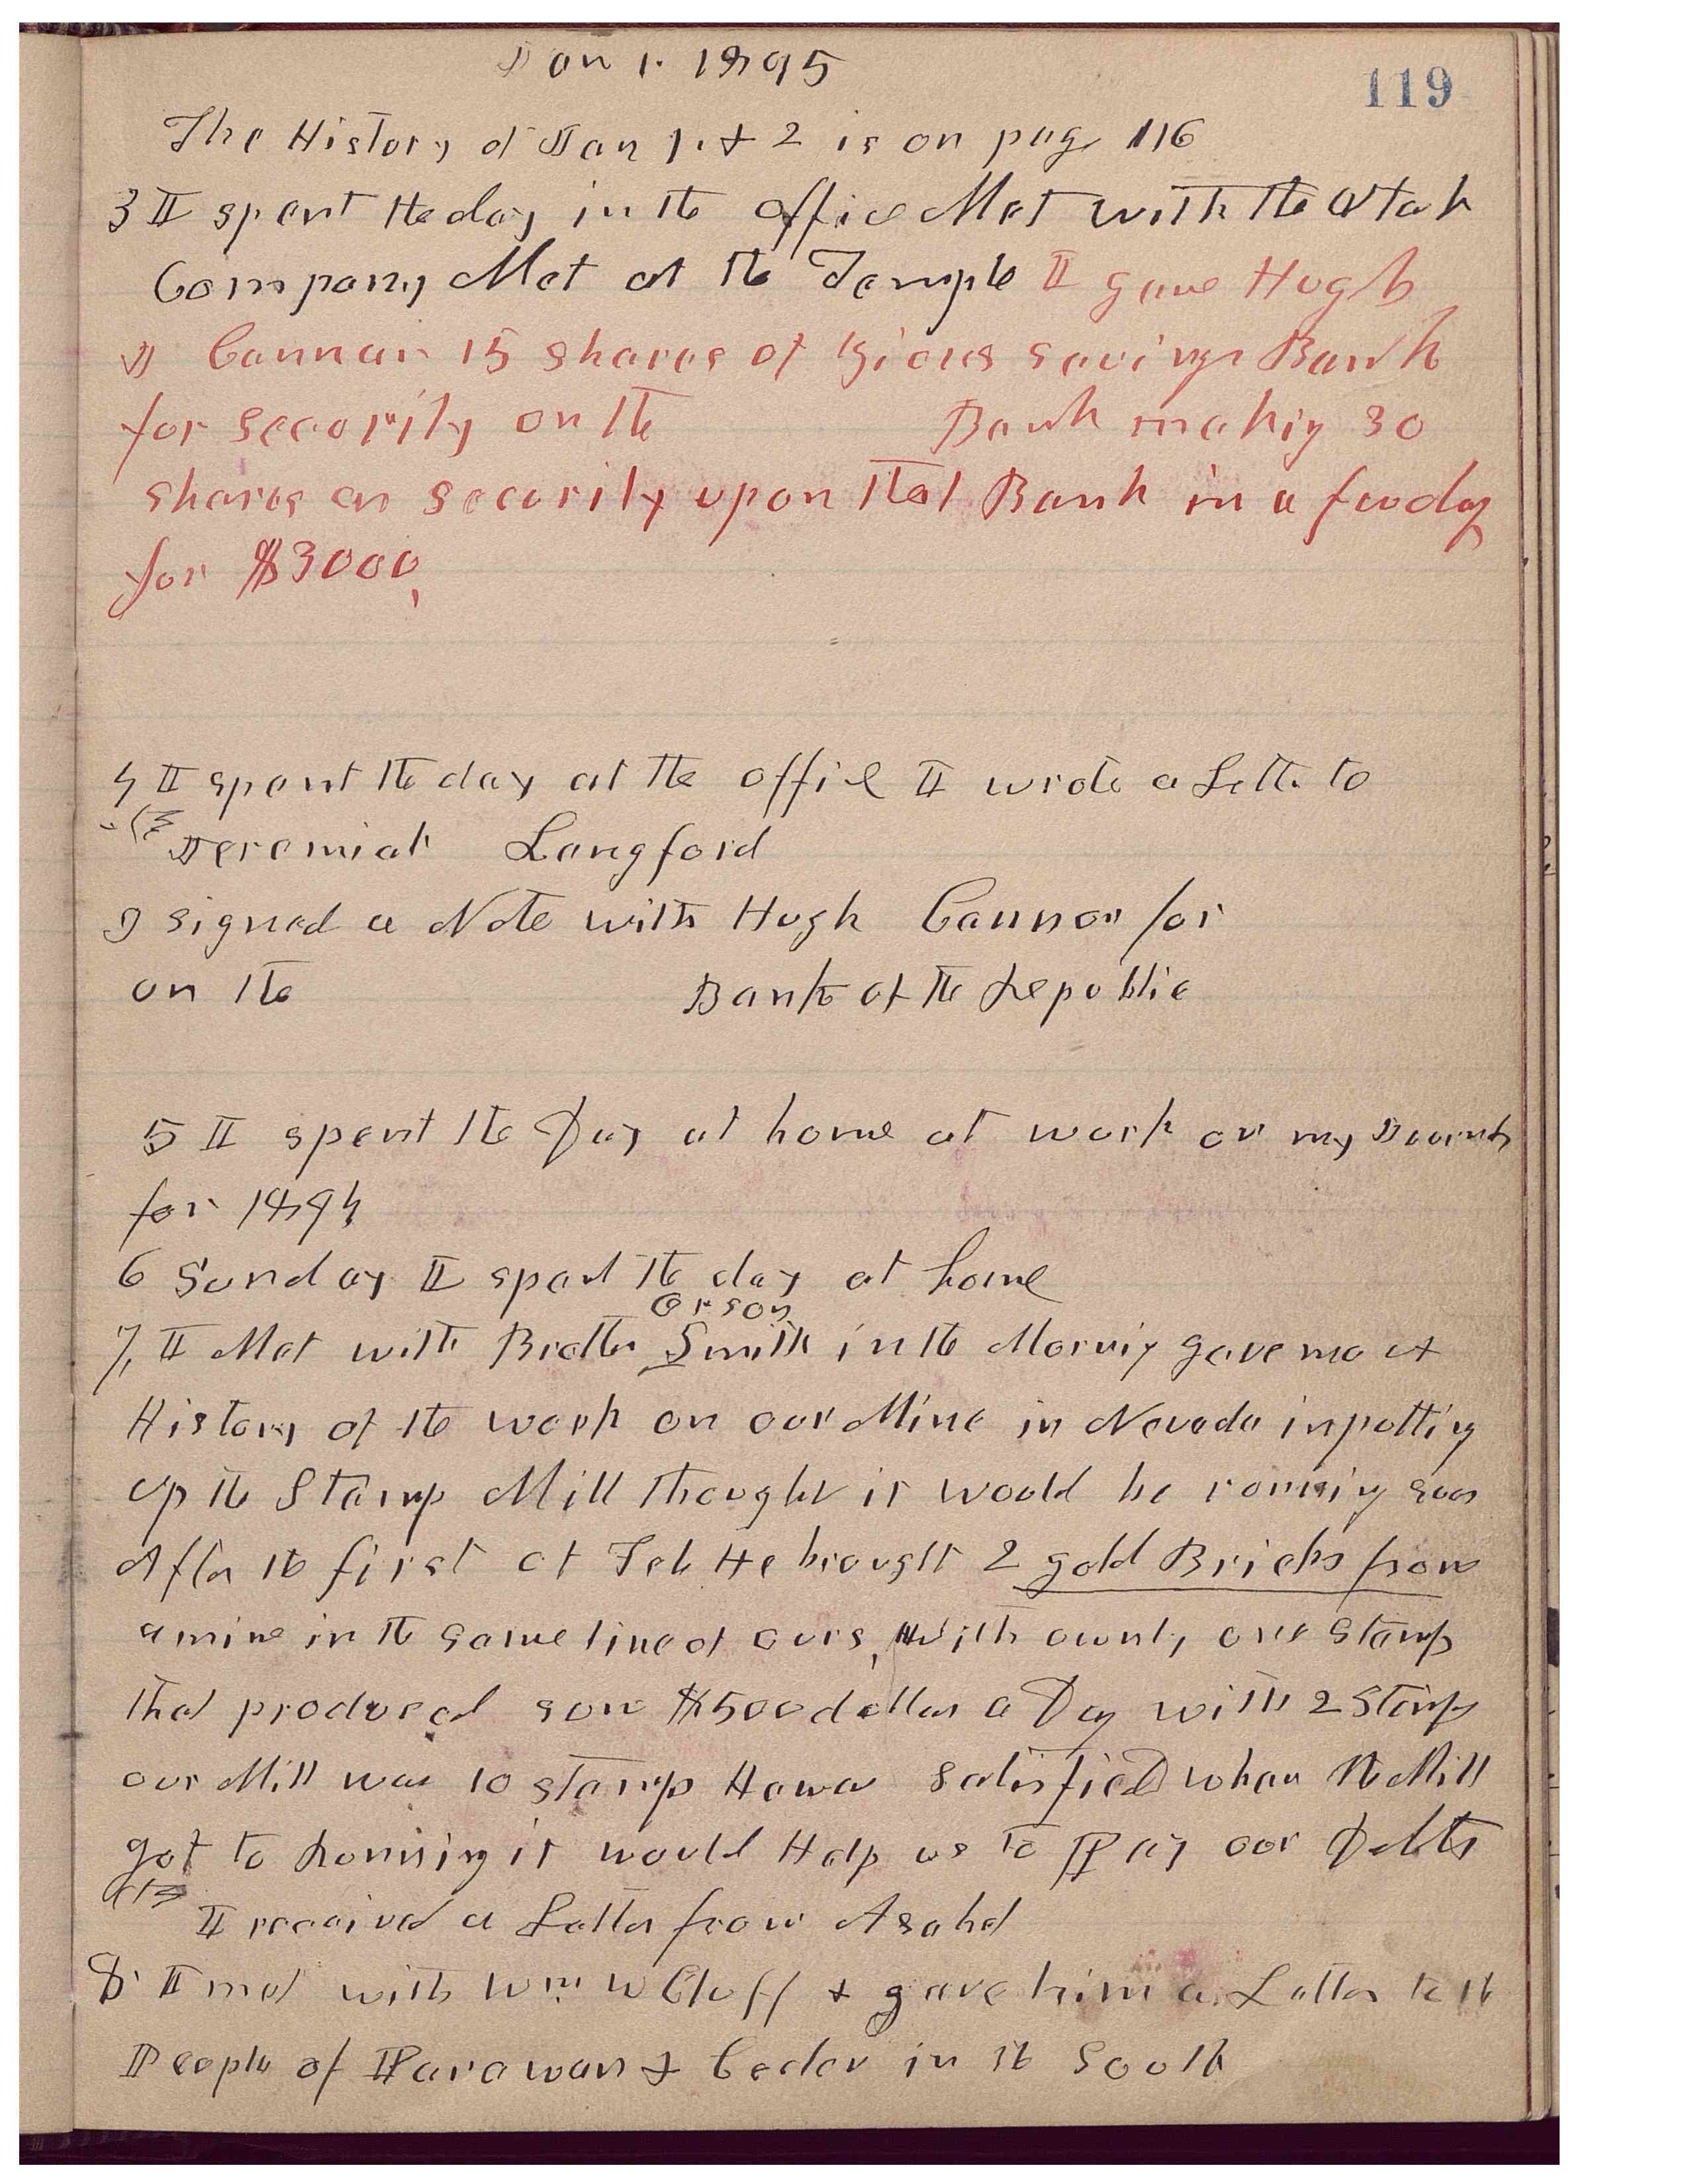 Jan 1. 1895
119
The History of Jan 1. & 2 is on page 116
3 I spent the day in the office Met with the Utah
Company Met at the Temple I gave Hugh
J Cannon 15 shares of Zions savings Bank
for security on the Bank making 30
shares as security upon that Bank in a few day
for $3000,
4 I spent the day at the office I wrote a Letter to
Jeremiah Langford
I signed a Note with Hugh Cannon for
on the Bank of the Republic
5 I spent the Day at home at work on my Journal
for 1894
6 Sunday I spent the day at home
Orson
7, I Met with Brother Smith in the Morning gave me a
History of the work on our Mine in Nevada in putting
up the Stamp Mill thought it would be running soon
After the first of Feb He brought 2 gold Bricks from
a mine in the same line of ours, with ownly one stamp
that produced some $500 dollars a Day with 2 Stamp
our Mill was 10 stamp He was satisfied when the Mill
got to running it would Help us to Pay our Debts
I received a Letter from Asahel
8 I met with Wm W Cluff & gave him a Letter to the
People of Parawan & Cedar in the South